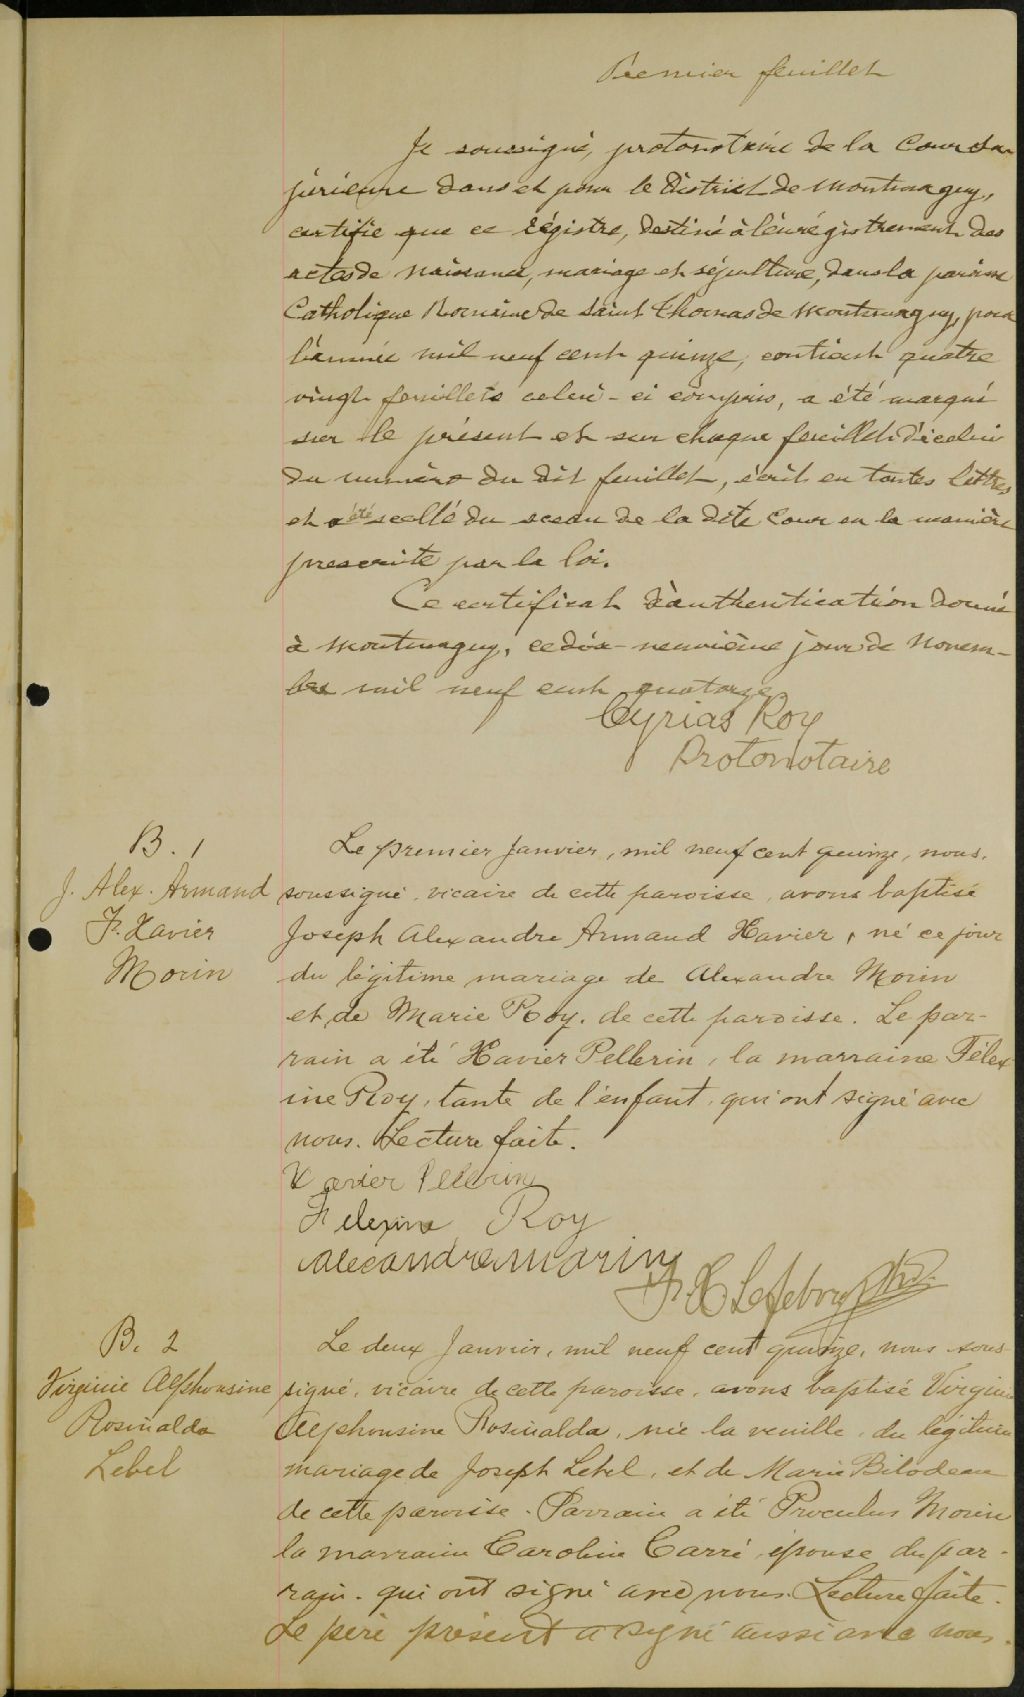 Premier feuillet
Je soussigné, protonotaire de la Cour Su-
périeure dans et pour le District de Montmagny,
certifie que ce régistre, destiné à l'enrégistrement des
actes de naissance, mariage et sépulture, dans la paroisse
Catholique Romaine de Saint Thomas de Montmagny, pour
l'année mil neuf cent quinze, contient quatre
vingt feuillets celui-ci compris, a été marqué
sur le présent et sur chaque feuillet d'icelui
du numéro du dit feuillet, écrit en toutes lettres
et a été scellé du sceau de la dite Cour en la manière
prescrite par la loi.
Ce certificat d'authentication donné
à Montmagny, ce dix-neuvième jour de Novem-
bre mil neuf cent quatorze
Cyrias Roy
Protonotaire
B. 1
J. Alex. Armand
F. Xavier
Morin
Le premier Janvier, mil neuf cent quinze, nous,
soussigné, vicaire de cette paroisse, avons baptisé
Joseph Alexandre Armand Xavier, né ce jour
du légitime mariage de Alexandre Morin
et de Marie Roy, de cette paroisse. Le par-
rain a été Xavier Pellerin, la marraine Félex
ine Roy, tante de l'enfant, qui ont signé avec
nous. Lecture faite.
Xavier Pellerin
Felexine Roy
Alexandre Morin
F. X. Lefebvre Ptre.
B. 2
Virginie Alphonsine
Rosinalda
Lebel
Le deux Janvier, mil neuf cent quinze, nous sous-
signé, vicaire de cette paroisse, avons baptisé Virginie
Alphonsine Rosinalda, née la veuille, du légitime
mariage de Joseph Lebel, et de Marie Bilodeau
de cette paroisse. Parrain a été Proculus Morin
la marraine Caroline Carré épouse du par-
rain. qui ont signé avec nous. Lecture faite.
Le père présent a signé aussi avec nous.